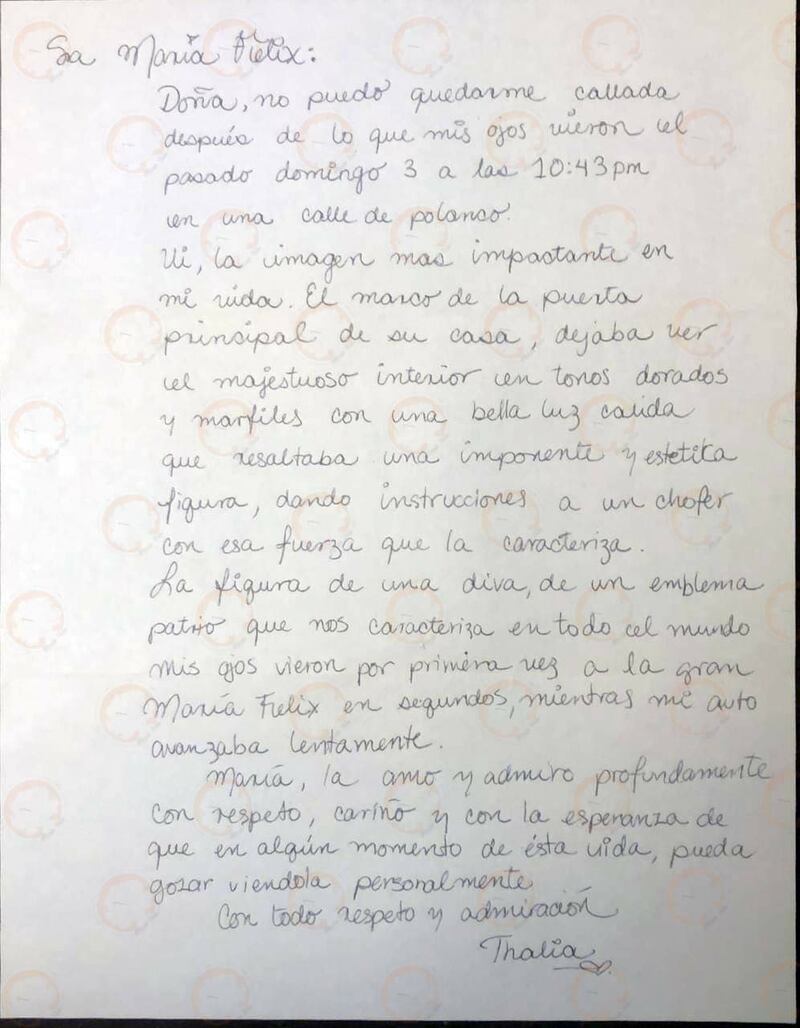 Sra María Félix:
Doña, no puedo quedarme callada
después de lo que mis ojos vieron el
pasado domingo 3 a las 10:43pm
en una calle de polanco.
Vi, la imagen mas impactante en
mi vida. El marco de la puerta
principal de su casa, dejaba ver
el majestuoso interior en tonos dorados
y marfiles con una bella luz calida
que resaltaba una imponente y estetika
figura, dando instrucciones a un chofer
con esa fuerza que la caracteriza.
La figura de una diva, de un emblema
patrio que nos caracteriza en todo el mundo
mis ojos vieron por primera vez a la gran
María Felix en segundos, mientras mi auto
avanzaba lentamente.
María, la amo y admiro profundamente
con respeto, cariño y con la esperanza de
que en algún momento de ésta vida, pueda
gozar viendola personalmente
Con todo respeto y admiración
Thalia